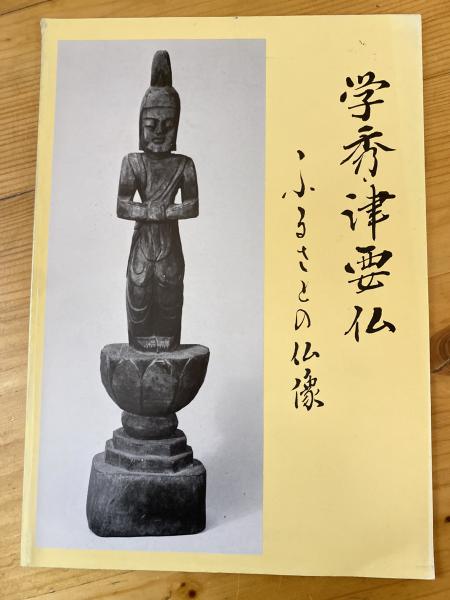 学秀・津要仏
ふるさとの仏像